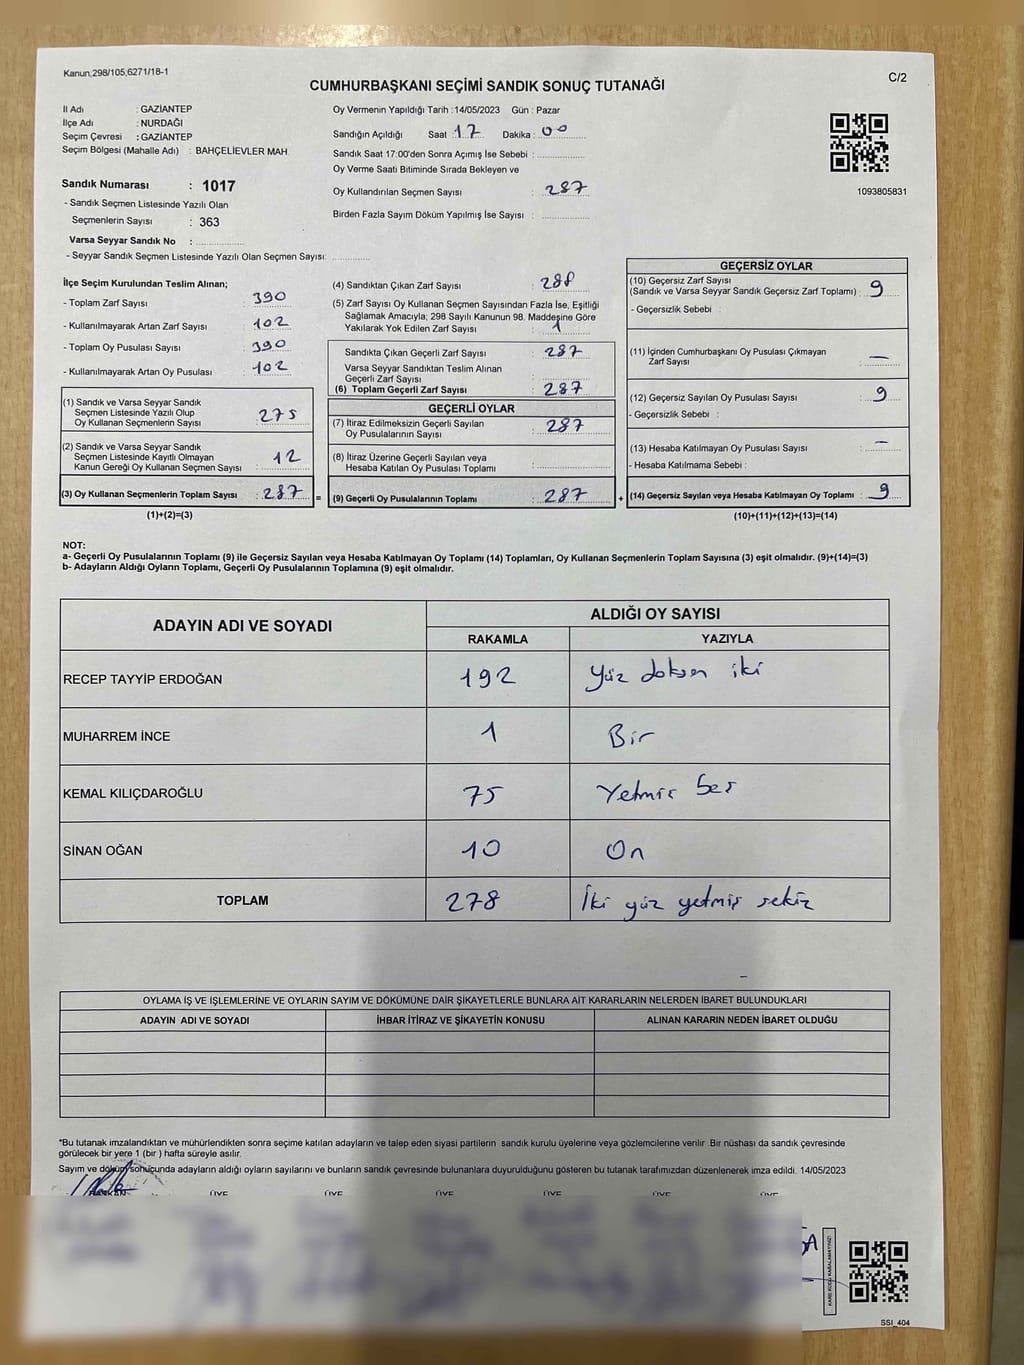 Kanun;298/105,6271/18-1
C/2
CUMHURBAŞKANI SEÇİMİ SANDIK SONUÇ TUTANAĞI
İl Adı : GAZİANTEP
İlçe Adı : NURDAĞI
Seçim Çevresi : GAZİANTEP
Seçim Bölgesi (Mahalle Adı) : BAHÇELİEVLER MAH.
Oy Vermenin Yapıldığı Tarih :14/05/2023 Gün : Pazar
Sandığın Açıldığı Saat : 17 Dakika : 00
Sandık Saat 17:00'den Sonra Açımış İse Sebebi :
Oy Verme Saati Bitiminde Sırada Bekleyen ve
Oy Kullandırılan Seçmen Sayısı : 287
Birden Fazla Sayım Döküm Yapılmış İse Sayısı :
1093805831
Sandık Numarası : 1017
- Sandık Seçmen Listesinde Yazılı Olan
Seçmenlerin Sayısı : 363
Varsa Seyyar Sandık No :
- Seyyar Sandık Seçmen Listesinde Yazılı Olan Seçmen Sayısı:
İlçe Seçim Kurulundan Teslim Alınan;
- Toplam Zarf Sayısı : 390
- Kullanılmayarak Artan Zarf Sayısı : 102
- Toplam Oy Pusulası Sayısı : 390
- Kullanılmayarak Artan Oy Pusulası : 102
(1) Sandık ve Varsa Seyyar Sandık
Seçmen Listesinde Yazılı Olup
Oy Kullanan Seçmenlerin Sayısı : 275
(2) Sandık ve Varsa Seyyar Sandık
Seçmen Listesinde Kayıtlı Olmayan
Kanun Gereği Oy Kullanan Seçmen Sayısı : 12
(3) Oy Kullanan Seçmenlerin Toplam Sayısı : 287 =
(1)+(2)=(3)
(4) Sandıktan Çıkan Zarf Sayısı : 288
(5) Zarf Sayısı Oy Kullanan Seçmen Sayısından Fazla İse, Eşitliği
Sağlamak Amacıyla; 298 Sayılı Kanunun 98. Maddesine Göre
Yakılarak Yok Edilen Zarf Sayısı : 1
Sandıkta Çıkan Geçerli Zarf Sayısı : 287
Varsa Seyyar Sandıktan Teslim Alınan
Geçerli Zarf Sayısı :
(6) Toplam Geçerli Zarf Sayısı : 287
GEÇERLİ OYLAR
(7) İtiraz Edilmeksizin Geçerli Sayılan
Oy Pusulalarının Sayısı : 287
(8) İtiraz Üzerine Geçerli Sayılan veya
Hesaba Katılan Oy Pusulası Toplamı :
(9) Geçerli Oy Pusulalarının Toplamı : 287 +
GEÇERSİZ OYLAR
(10) Geçersiz Zarf Sayısı
(Sandık ve Varsa Seyyar Sandık Geçersiz Zarf Toplamı) : 9
- Geçersizlik Sebebi :
(11) İçinden Cumhurbaşkanı Oy Pusulası Çıkmayan
Zarf Sayısı : —
(12) Geçersiz Sayılan Oy Pusulası Sayısı : 9
- Geçersizlik Sebebi :
(13) Hesaba Katılmayan Oy Pusulası Sayısı : —
- Hesaba Katılmama Sebebi :
(14) Geçersiz Sayılan veya Hesaba Katılmayan Oy Toplamı : 9
(10)+(11)+(12)+(13)=(14)
NOT:
a- Geçerli Oy Pusulalarının Toplamı (9) ile Geçersiz Sayılan veya Hesaba Katılmayan Oy Toplamı (14) Toplamları, Oy Kullanan Seçmenlerin Toplam Sayısına (3) eşit olmalıdır. (9)+(14)=(3)
b- Adayların Aldığı Oyların Toplamı, Geçerli Oy Pusulalarının Toplamına (9) eşit olmalıdır.
ADAYIN ADI VE SOYADI
ALDIĞI OY SAYISI
RAKAMLA YAZIYLA
RECEP TAYYİP ERDOĞAN 192 Yüz doksan iki
MUHARREM İNCE 1 Bir
KEMAL KILIÇDAROĞLU 75 Yetmiş beş
SİNAN OĞAN 10 On
TOPLAM 278 İki yüz yetmiş sekiz
OYLAMA İŞ VE İŞLEMLERİNE VE OYLARIN SAYIM VE DÖKÜMÜNE DAİR ŞİKAYETLERLE BUNLARA AİT KARARLARIN NELERDEN İBARET BULUNDUKLARI
ADAYIN ADI VE SOYADI İHBAR İTİRAZ VE ŞİKAYETİN KONUSU ALINAN KARARIN NEDEN İBARET OLDUĞU
*Bu tutanak imzalandıktan ve mühürlendikten sonra seçime katılan adayların ve talep eden siyasi partilerin sandık kurulu üyelerine veya gözlemcilerine verilir .Bir nüshası da sandık çevresinde
görülecek bir yere 1 (bir ) hafta süreyle asılır.
Sayım ve döküm sonucunda adayların aldığı oyların sayılarını ve bunların sandık çevresinde bulunanlara duyurulduğunu gösteren bu tutanak tarafımızdan düzenlenerek imza edildi. 14/05/2023
BAŞKAN ÜYE ÜYE ÜYE ÜYE ÜYE ÜYE
KARE KODU KARALAMAYINIZ!
SSI_404